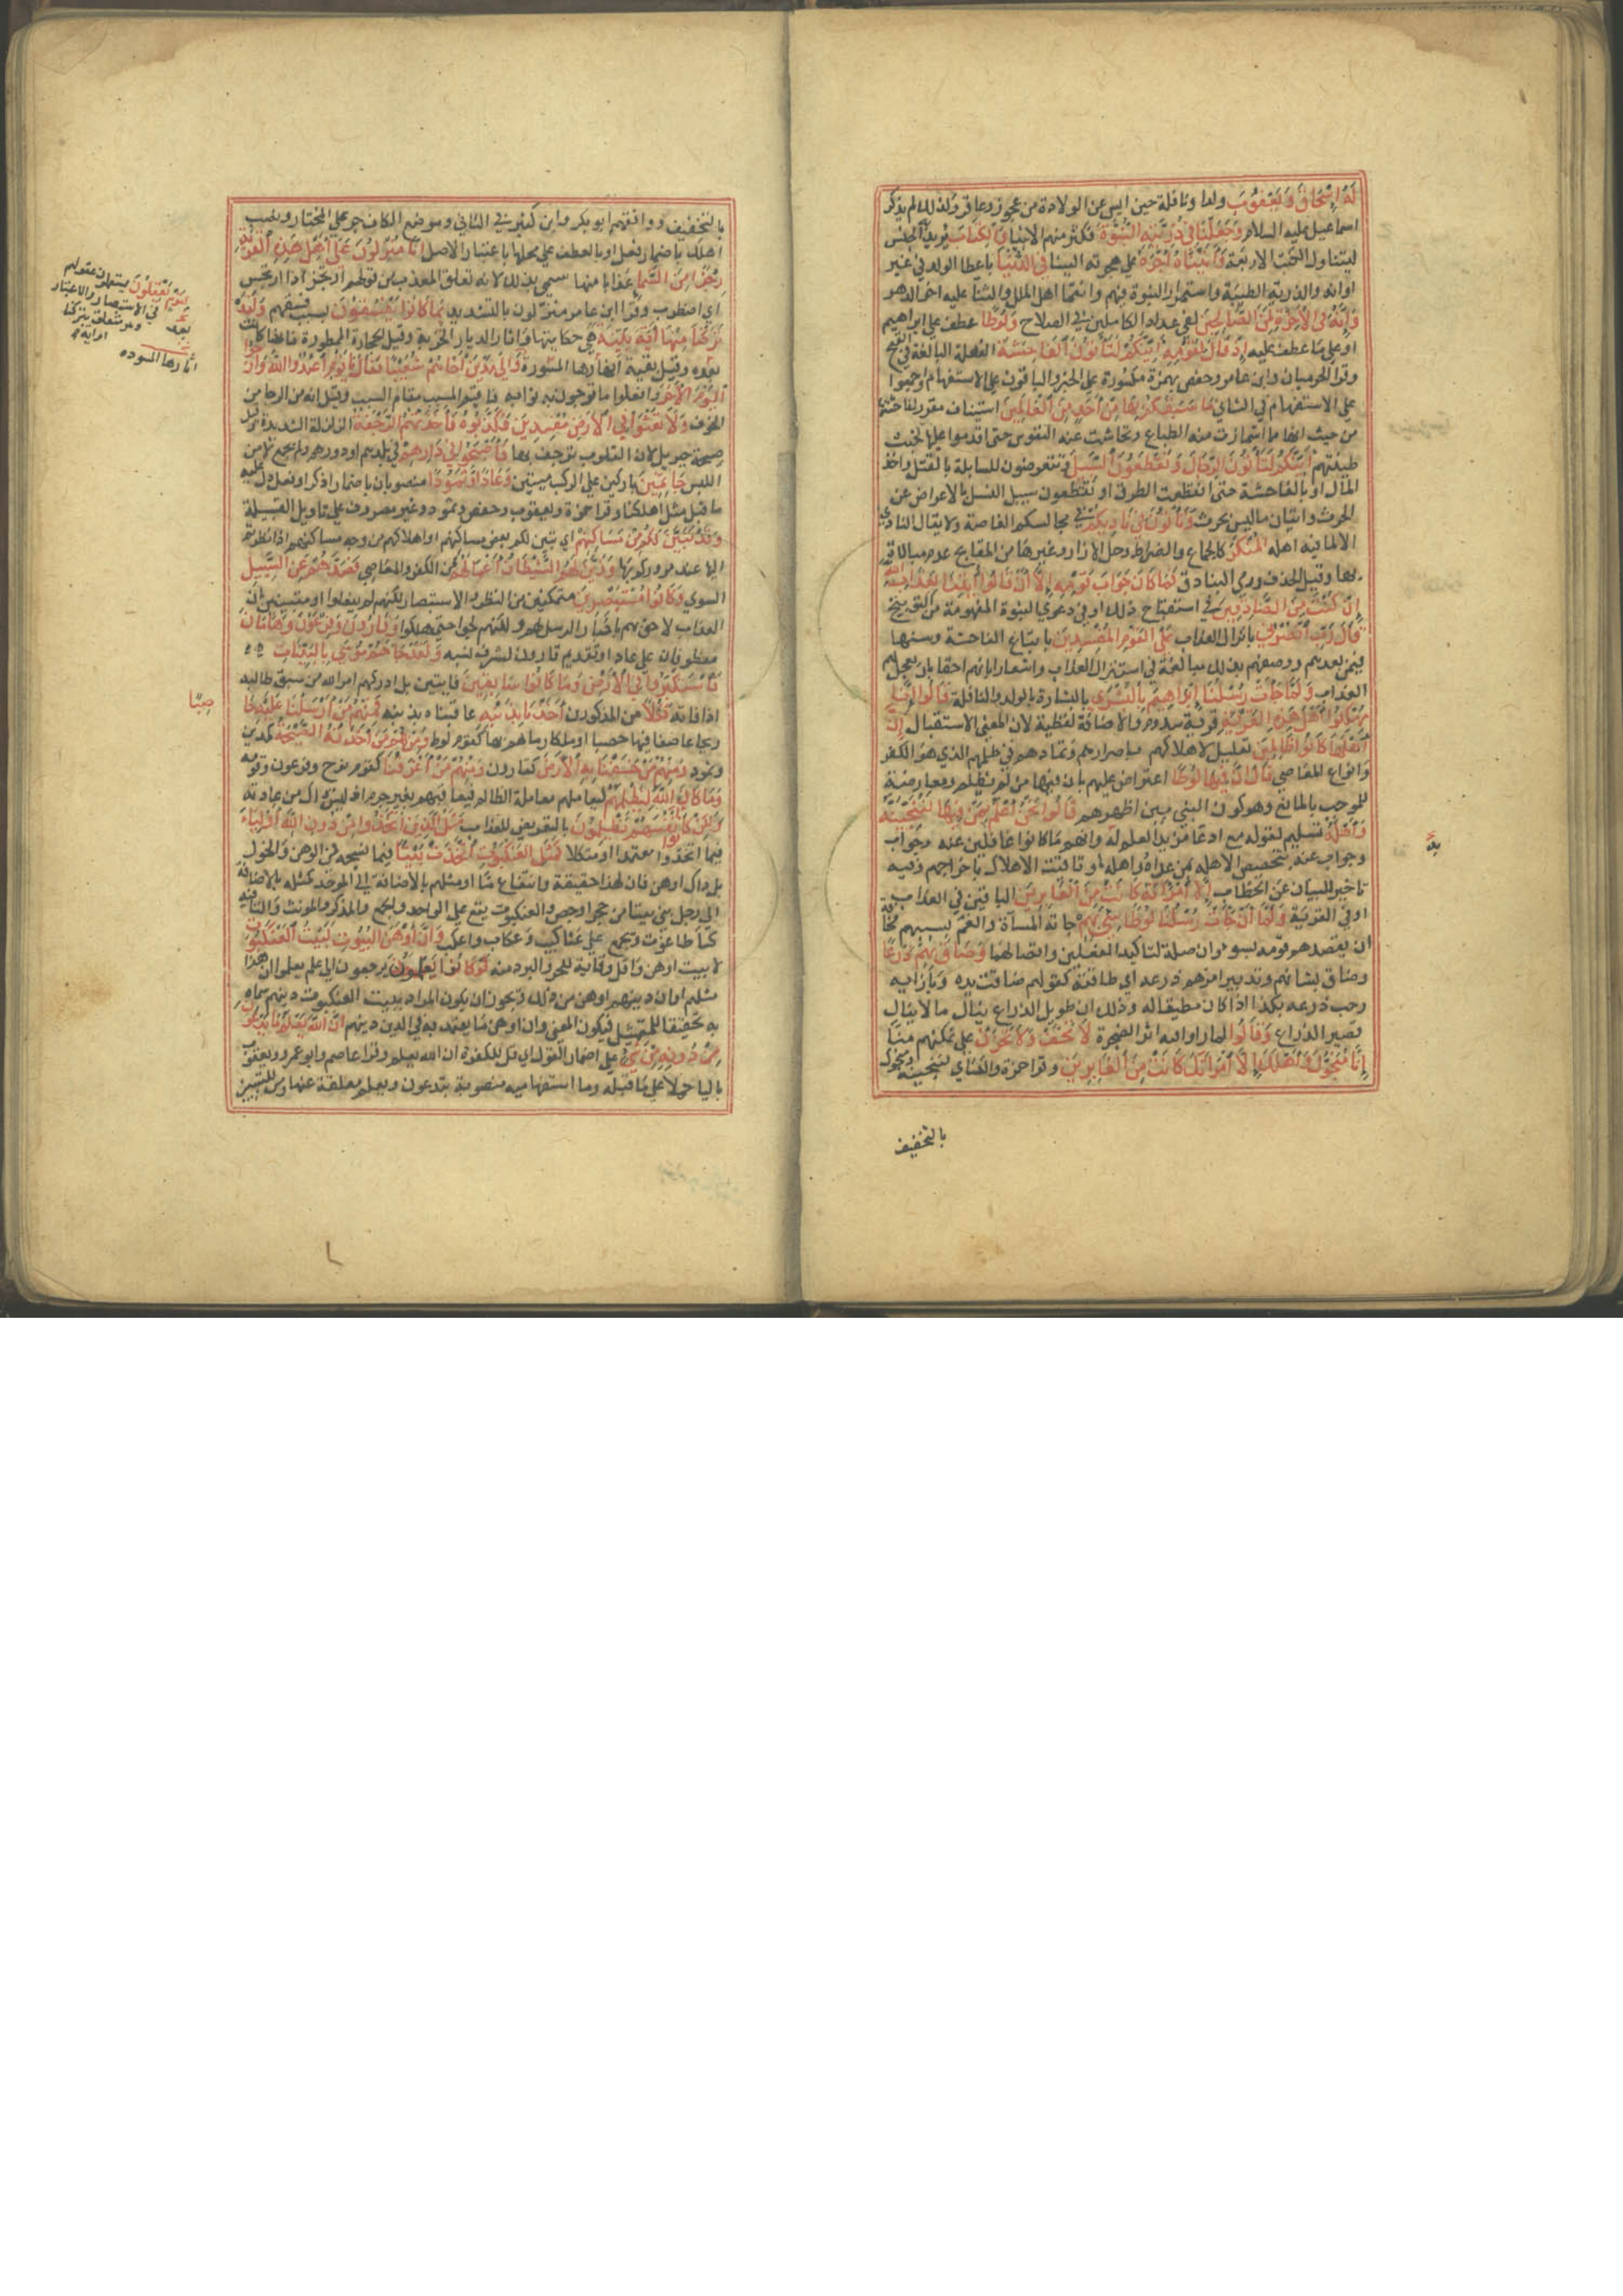 لَهُ إِسْحَاقَ وَيَعْقُوبَ ولدا ونافلة حين ايس عن الولادة من عجوز وعاقر ولذلك لم يذكر
اسماعيل عليه السلام وَجَعَلْنَا فِي ذُرِّيَّتِهِ النُّبُوَّةَ فكثر منهم الانبيا وَالكِتَابَ يريد به الجنس
ليتناول الكتب الاربعة وَآتَيْنَاهُ أَجْرَهُ علي هجرته الينا فِي الدُّنْيَا باعطا الولد في غير
اوانه والذرية الطيبة واستمرار النبوة فيهم وانتما اهل الملل والثنا عليه اخر الدهر
وَإِنَّهُ فِي الآخِرَةِ لَمِنَ الصَّالِحِينَ لفي عداد الكاملين في الصلاح وَلُوطًا عطف علي ابراهيم
او علي ما عطف عليه إِذْ قَالَ لِقَوْمِهِ إِنَّكُمْ لَتَأْتُونَ الفَاحِشَةَ الفعلة البالغة في القبح
وقرا الحرميان وابن عامر وحفص بهمزة مكسورة علي الخبر والباقون علي الاستفهام واجمعوا
علي الاستفهام في الثاني مَا سَبَقَكُمْ بِهَا مِنْ أَحَدٍ مِنَ العَالَمِينَ استيناف مقرر لفاحشتها
من حيث انها مما اشمازت منه الطباع وتحاشت عنه النفوس حتي اقدموا عليها لخبث
طينتهم أَئِنَّكُمْ لَتَأْتُونَ الرِّجَالَ وَتَقْطَعُونَ السَّبِيلَ وتتعرضون للسابلة بالقتل واخذ
المال او بالفاحشة حتي انقطعت الطرق او تقطعون سبيل النسل بالاعراض عن
الحرث واتيان ما ليس بحرث وَتَأْتُونَ فِي نَادِيكُمُ في مجالسكم الغاصة ولا يقال النادي
الا لما فيه اهله المُنْكَرَ كالجماع والضراط وحل الازار وغيرها من القبايح عدم مبالاة
بها وقيل الخذف ورمي البنادق فَمَا كَانَ جَوَابَ قَوْمِهِ إِلَّا أَنْ قَالُوا ائْتِنَا بِعَذَابِ اللَّهِ
إِنْ كُنْتَ مِنَ الصَّادِقِينَ في استقباح ذلك او في دعوي النبوة المفهومة من التوبيخ
قَالَ رَبِّ انْصُرْنِي بانزال العذاب عَلَى القَوْمِ المُفْسِدِينَ بابتداع الفاحشة وسنها
فيمن بعدهم ووصفهم بذلك مبالغة في استنزال العذاب واشعارا بانهم احقا بان يعجل لهم
العذاب وَلَمَّا جَاءَتْ رُسُلُنَا إِبْرَاهِيمَ بِالبُشْرَى بالبشارة بالولد والنافلة قَالُوا إِنَّا
مُهْلِكُوا أَهْلِ هَذِهِ القَرْيَةِ قرية سدوم والاضافة لفظية لان المعني الاستقبال إِنَّ
أَهْلَهَا كَانُوا ظَالِمِينَ تعليل لاهلاكهم باصرارهم وتماديهم في ظلمهم الذي هو الكفر
وانواع المعاصي قَالَ إِنَّ فِيهَا لُوطًا اعتراض عليهم بان فيها من لم يظلم ومعارضة
للموجب بالمانع وهو كون النبي بين اظهرهم قَالُوا نَحْنُ أَعْلَمُ بِمَنْ فِيهَا لَنُنَجِّيَنَّهُ
وَأَهْلَهُ تسليم لقوله مع ادعا مزيد العلم له وانهم ما كانوا غافلين عنه وجواب
وجواب عنه بتخصيص الاهل بمن عداه واهله او تاقيت الاهلاك باخراجهم وفيه
تاخير للبيان عن الخطاب إِلَّا امْرَأَتَهُ كَانَتْ مِنَ الغَابِرِينَ الباقين في العذاب
او في القرية وَلَمَّا أَنْ جَاءَتْ رُسُلُنَا لُوطًا سِيءَ بِهِمْ جاته المساة والغم بسببهم مخافة
ان يقصدهم قومه بسوء وان صلة لتاكيد الفعلين واتصالهما وَضَاقَ بِهِمْ ذَرْعًا
وضاق بشانهم وتدبير امرهم ذرعه اي طاقته كقولهم ضاقت يده وبازايه
رحب ذرعه بكذا اذا كان مطيقا له وذلك ان طويل الذراع ينال ما لا ينال
قصير الذراع وَقَالُوا لما راوا فيه اثر الضجرة لَا تَخَفْ وَلَا تَحْزَنْ علي تمكنهم منا
إِنَّا مُنَجُّوكَ وَأَهْلَكَ إِلَّا امْرَأَتَكَ كَانَتْ مِنَ الغَابِرِينَ وقرا حمزة والكساي لننجينه ومنجوك
بالتخفيف
بالتخفيف ووافقهم ابو بكر وابن كثير في الثاني وموضع الكاف جر علي المختار ونصب
اهلك باضمار فعل او بالعطف علي محلها باعتبار الاصل إِنَّا مُنْزِلُونَ عَلَى أَهْلِ هَذِهِ القَرْيَةِ
رِجْزًا مِنَ السَّمَاءِ عذابا منها سمي بذلك لانه يقلق المعذب من قولهم ارتجز اذا ارتجس
اي اضطرب وقرا ابن عامر منزّلون بالتشديد بِمَا كَانُوا يَفْسُقُونَ بسبب فسقهم وَلَقَدْ
تَرَكْنَا مِنْهَا آيَةً بَيِّنَةً هي حكايتها او اثار الديار الخربة وقيل الحجارة الممطورة فانها كانت
بعده وقيل بقية انهارها المسودة وَإِلَى مَدْيَنَ أَخَاهُمْ شُعَيْبًا فَقَالَ يَا قَوْمِ اعْبُدُوا اللَّهَ وَارْجُوا
اليَوْمَ الآخِرَ وافعلوا ما ترجون به ثوابه فاقيم المسبب مقام السبب وقيل انه من الرجا بمعني
الخوف وَلَا تَعْثَوْا فِي الأَرْضِ مُفْسِدِينَ فَكَذَّبُوهُ فَأَخَذَتْهُمُ الرَّجْفَةُ الزلزلة الشديدة وقيل
صيحة جبريل لان القلوب ترجف بها فَأَصْبَحُوا فِي دَارِهِمْ في بلدهم او دورهم ولم يجمع لامن
اللبس جَاثِمِينَ باركين علي الركب ميتين وَعَادًا وَثَمُودًا منصوبان باضمار اذكر او فعل دل عليه
ما قبله مثل اهلكنا وقرا حمزة ويعقوب وحفص وثمود غير مصروف علي تاويل القبيلة
وَقَدْ تَبَيَّنَ لَكُمْ مِنْ مَسَاكِنِهِمْ اي تبين لكم بعض مساكنهم او اهلاكهم من وجه مساكنهم اذا نظرتم
اليها عند مروركم بها وَزَيَّنَ لَهُمُ الشَّيْطَانُ أَعْمَالَهُمْ من الكفر والمعاصي فَصَدَّهُمْ عَنِ السَّبِيلِ
السوي وَكَانُوا مُسْتَبْصِرِينَ متمكنين من النظر والاستبصار لكنهم لم يفعلوا او متبينين ان
العذاب لاحق بهم باخبار الرسل لهم ولكنهم لجوا حتي هلكوا وَقَارُونَ وَفِرْعَوْنَ وَهَامَانَ
معطوفان علي عادا وتقديم قارون لشرف نسبه وَلَقَدْ جَاءَهُمْ مُوسَى بِالبَيِّنَاتِ
فَاسْتَكْبَرُوا فِي الأَرْضِ وَمَا كَانُوا سَابِقِينَ فايتين بل ادركهم امر الله من سبق طالبه
اذا فاته فَكُلًّا من المذكورين أَخَذْنَا بِذَنْبِهِ عاقبناه بذنبه فَمِنْهُمْ مَنْ أَرْسَلْنَا عَلَيْهِ حَا
ريحا عاصفا فيها حصبا او ملكا رماهم بها كقوم لوط وَمِنْهُمْ مَنْ أَخَذَتْهُ الصَّيْحَةُ كمدين
وثمود وَمِنْهُمْ مَنْ خَسَفْنَا بِهِ الأَرْضَ كقارون وَمِنْهُمْ مَنْ أَغْرَقْنَا كقوم نوح وفرعون وقومه
وَمَا كَانَ اللَّهُ لِيَظْلِمَهُمْ ليعاملهم معاملة الظالم فيعاقبهم بغير جرم اذ ليس ذلك من عادته
وَلَكِنْ كَانُوا أَنْفُسَهُمْ يَظْلِمُونَ بالتعريض للعذاب مَثَلُ الَّذِينَ اتَّخَذُوا مِنْ دُونِ اللَّهِ أَوْلِيَاءَ
فيما اتخذوا معتمدا ومتكلا كَمَثَلِ العَنْكَبُوتِ اتَّخَذَتْ بَيْتًا فيما نسجه في الوهن والخور
بل ذاك اوهن فان لهذا حقيقة وانتفاع ما او مثلهم بالاضافة الي الموحد كمثله بالاضافة
الي رجل بني بيتا من حجر او جص والعنكبوت يقع علي الواحد والجمع والمذكر والمونث والتا فيه
كتا طاغوت ويجمع علي عناكيب وعكاب واعكب وَإِنَّ أَوْهَنَ البُيُوتِ لَبَيْتُ العَنْكَبُوتِ
لا بيت اوهن واقل وقاية للحر والبرد منه لَوْ كَانُوا يَعْلَمُونَ يرجعون الي علم يعلموا ان هذا
مثلهم وان دينهم اوهن من ذلك ويجوز ان يكون المراد ببيت العنكبوت دينهم سماه
به تحقيقا للتمثيل فيكون المعني وان اوهن ما يعتمد به في الدين دينهم إِنَّ اللَّهَ يَعْلَمُ مَا يَدْعُونَ
مِنْ دُونِهِ مِنْ شَيْءٍ علي اضمار القول اي قل للكفرة ان الله يعلم وقرا عاصم وابو عمرو ويعقوب
باليا حملا علي ما قبله وما استفهامية منصوبة بتدعون ويعلم معلقة عنها ومن للتبيين
لِقَوْمٍ يَعْقِلُونَ يستعملون عقولهم
في الاستبصار والاعتبار
وهو متعلق بتركنا
او اية
انهارها المسوده
صِبًا